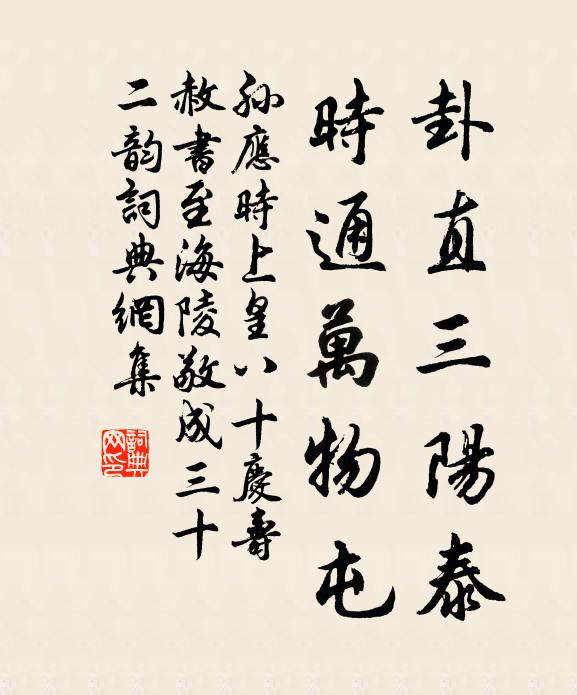 卦直三陽泰
時通萬物屯
孫應時上皇八十慶壽
赦書至海陵敬成三十
二韵詞典網集
詞典網印